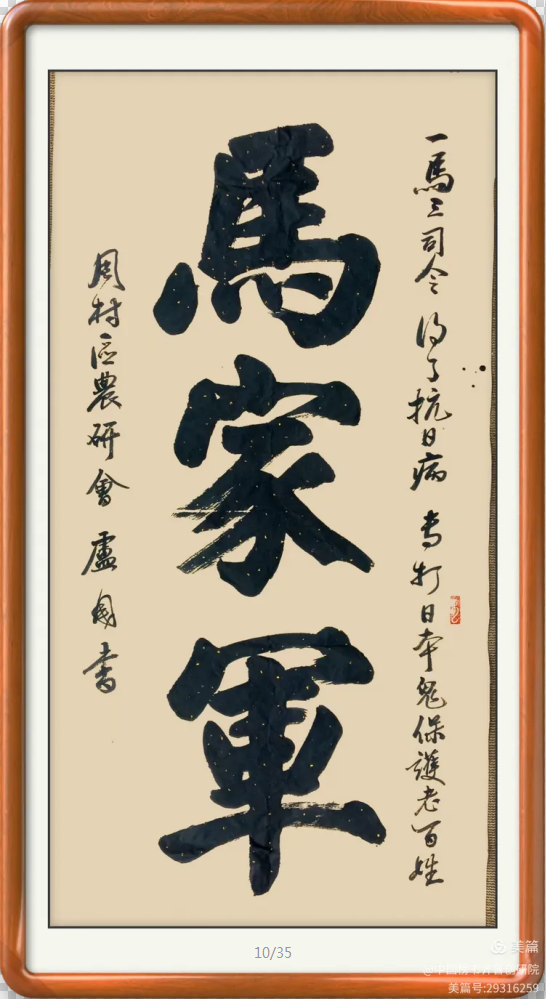 一馬三司令 得了抗日病 专打日本鬼保護老百姓
馬家軍
周村區農研會 盧國書
10/35
美篇
美篇号:29316259